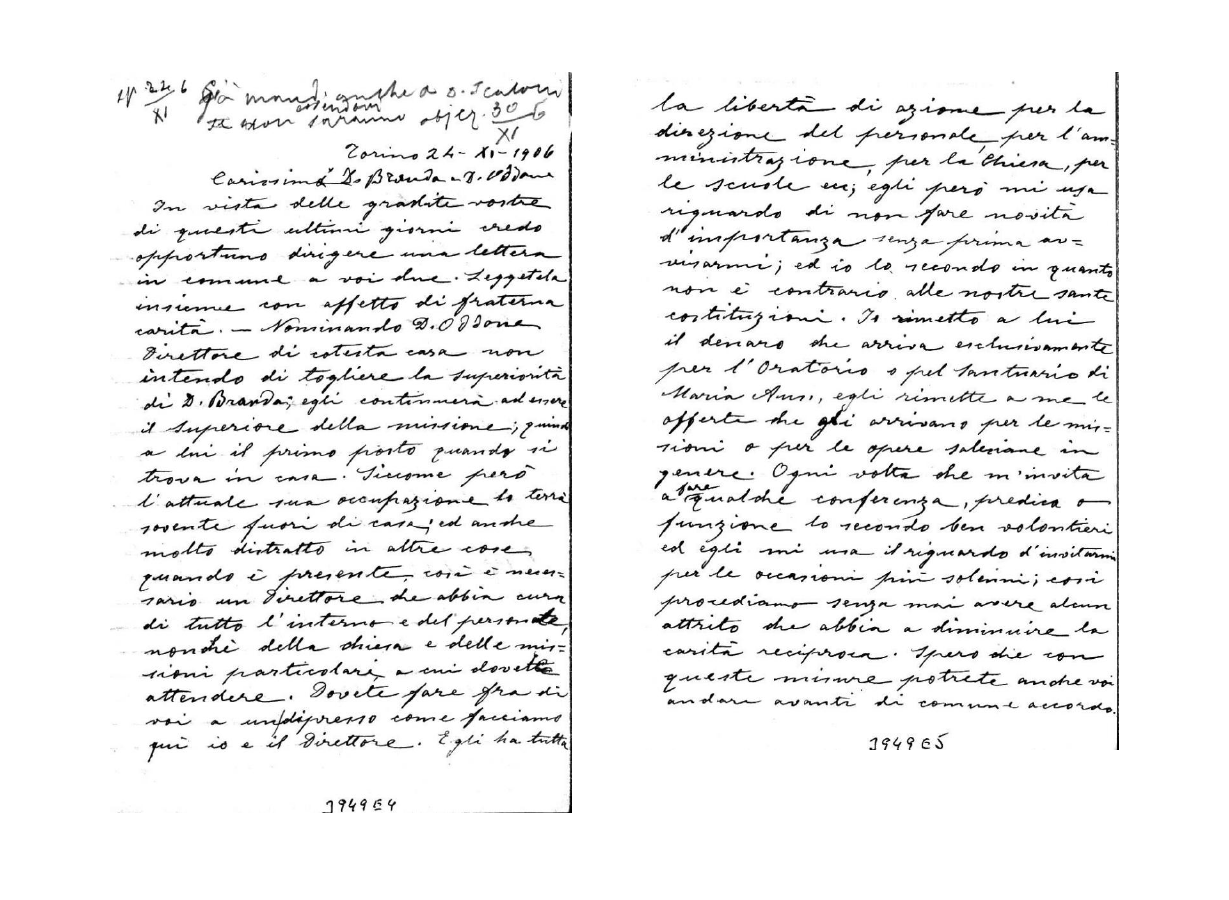 22 6
XI
Già mandi anche a D. Scaloni
se non saranno objez. 30 6
XI
Torino 24-XI-1906
Carissimi D. Branda e D. Oddone
In vista delle gradite vostre
di questi ultimi giorni credo
opportuno dirigere una lettera
in comune a voi due. Leggetela
insieme con affetto di fraterna
carità. — Nominando D. Oddone
Direttore di cotesta casa non
intendo di togliere la superiorità
di D. Branda; egli continuerà ad essere
il Superiore della missione; quindi
a lui il primo posto quando si
trova in casa. Siccome però
l'attuale sua occupazione lo terrà
sovente fuori di casa, ed anche
molto distratto in altre cose
quando è presente, così è neces=
sario un Direttore che abbia cura
di tutto l'interno e del personale,
nonchè della chiesa e delle mis=
sioni particolari, a cui dovette
attendere. Dovete fare fra di
voi a un dipresso come facciamo
qui io e il Direttore. Egli ha tutta
1949E4
la libertà di azione per la
direzione del personale, per l'am=
ministrazione, per la Chiesa, per
le scuole ec; egli però mi usa
riguardo di non fare novità
d'importanza senza prima av=
visarmi; ed io lo secondo in quanto
non è contrario alle nostre sante
costituzioni. Io rimetto a lui
il denaro che arriva esclusivamente
per l'Oratorio o pel Santuario di
Maria Aus., egli rimette a me le
offerte che gli arrivano per le mis=
sioni o per le opere salesiane in
genere. Ogni volta che m'invita
a fare qualche conferenza, predica o
funzione lo secondo ben volontieri
ed egli mi usa il riguardo d'invitarmi
per le occasioni più solenni; così
procediamo senza mai avere alcun
attrito che abbia a diminuire la
carità reciproca. Spero che con
queste misure potrete anche voi
andare avanti di comune accordo.
1949E5